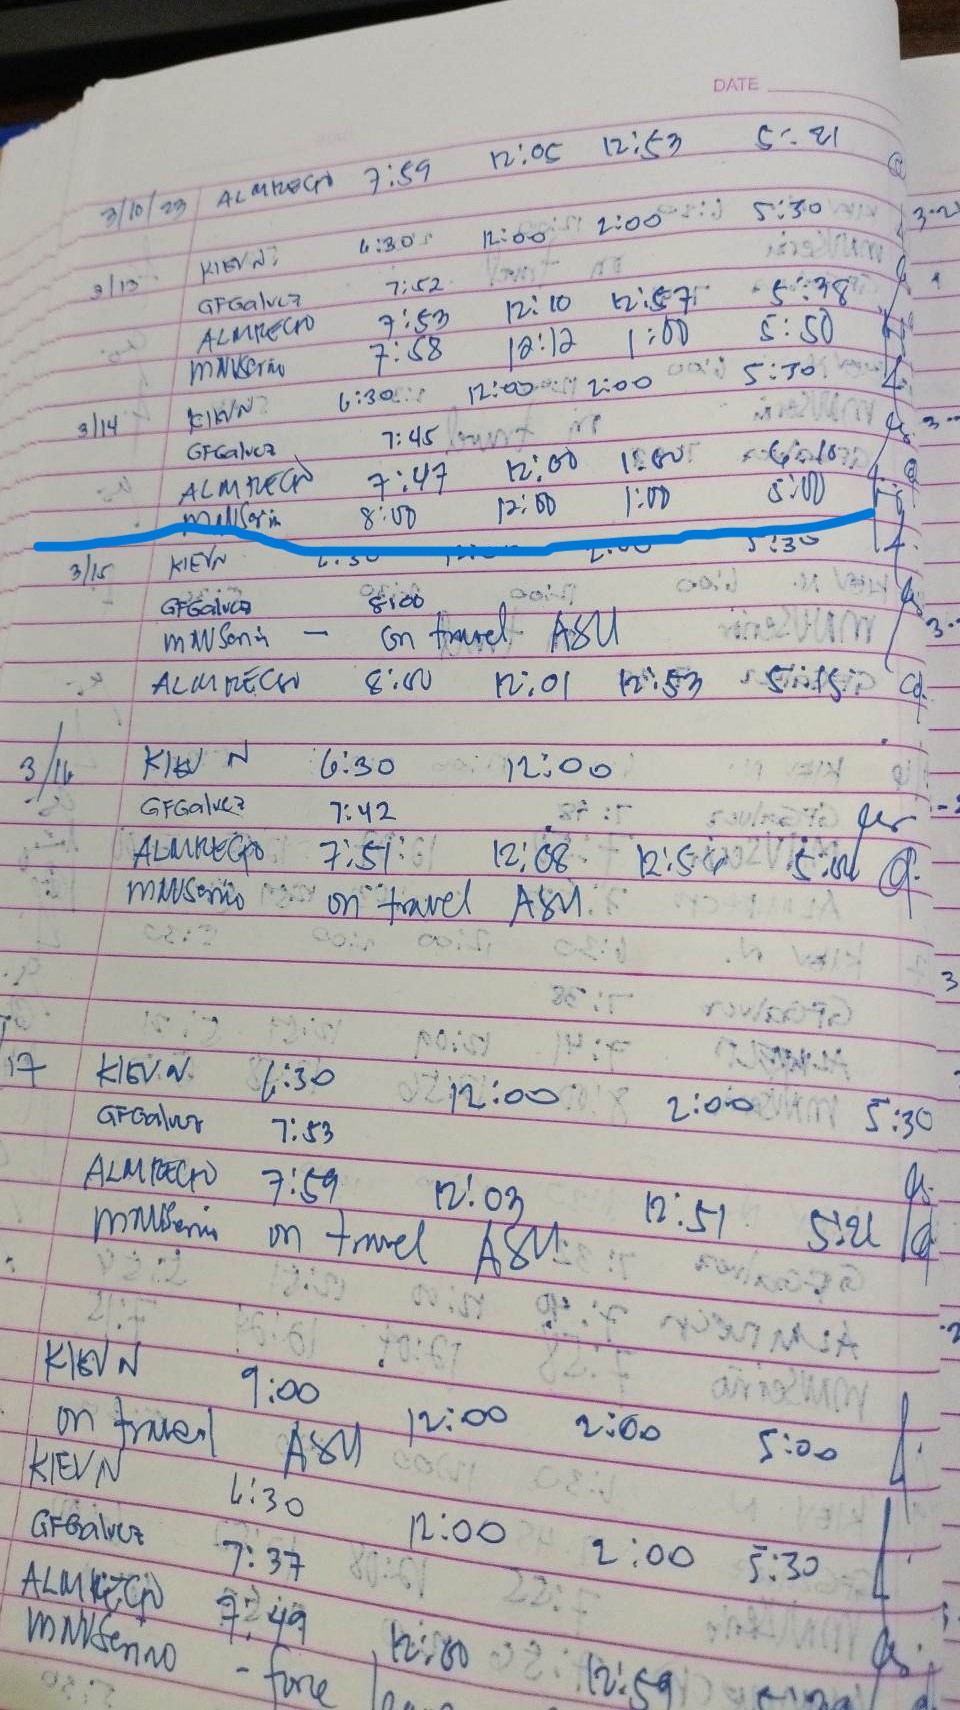 DATE
3/10/23 ALMRECIO 7:59 12:05 12:53 5:21
3/13 KIEV N 6:30 12:00 2:00 5:30
GFGalvez 7:52
ALMRECIO 7:53 12:10 12:57 5:38
MNVSerio 7:58 12:12 1:00 5:50
3/14 KIEV N 6:30 12:00 2:00 5:30
GFGalvez 7:45
ALMRECIO 7:47 12:00
8:00 12:00 1:00 5:00
3/15 KIEV N 5:30
GFGalvez 8:00
– on travel ASU
ALMRECIO 8:00 12:01 12:53 5:15
3/16 KIEV N 6:30 12:00
GFGalvez 7:42
ALMRECIO 7:51 12:08 5:04
on travel ASU
17 KIEV N 6:30 12:00 2:00 5:30
GFGalvez 7:53
ALMRECIO 7:59 12:03 12:51 5:21
on travel ASU
KIEV N 9:00 12:00 2:00 5:00
on travel ASU
KIEV N 6:30 12:00 2:00 5:30
GFGalvez 7:37
ALMRECIO 7:49 12:00 12:59
- force